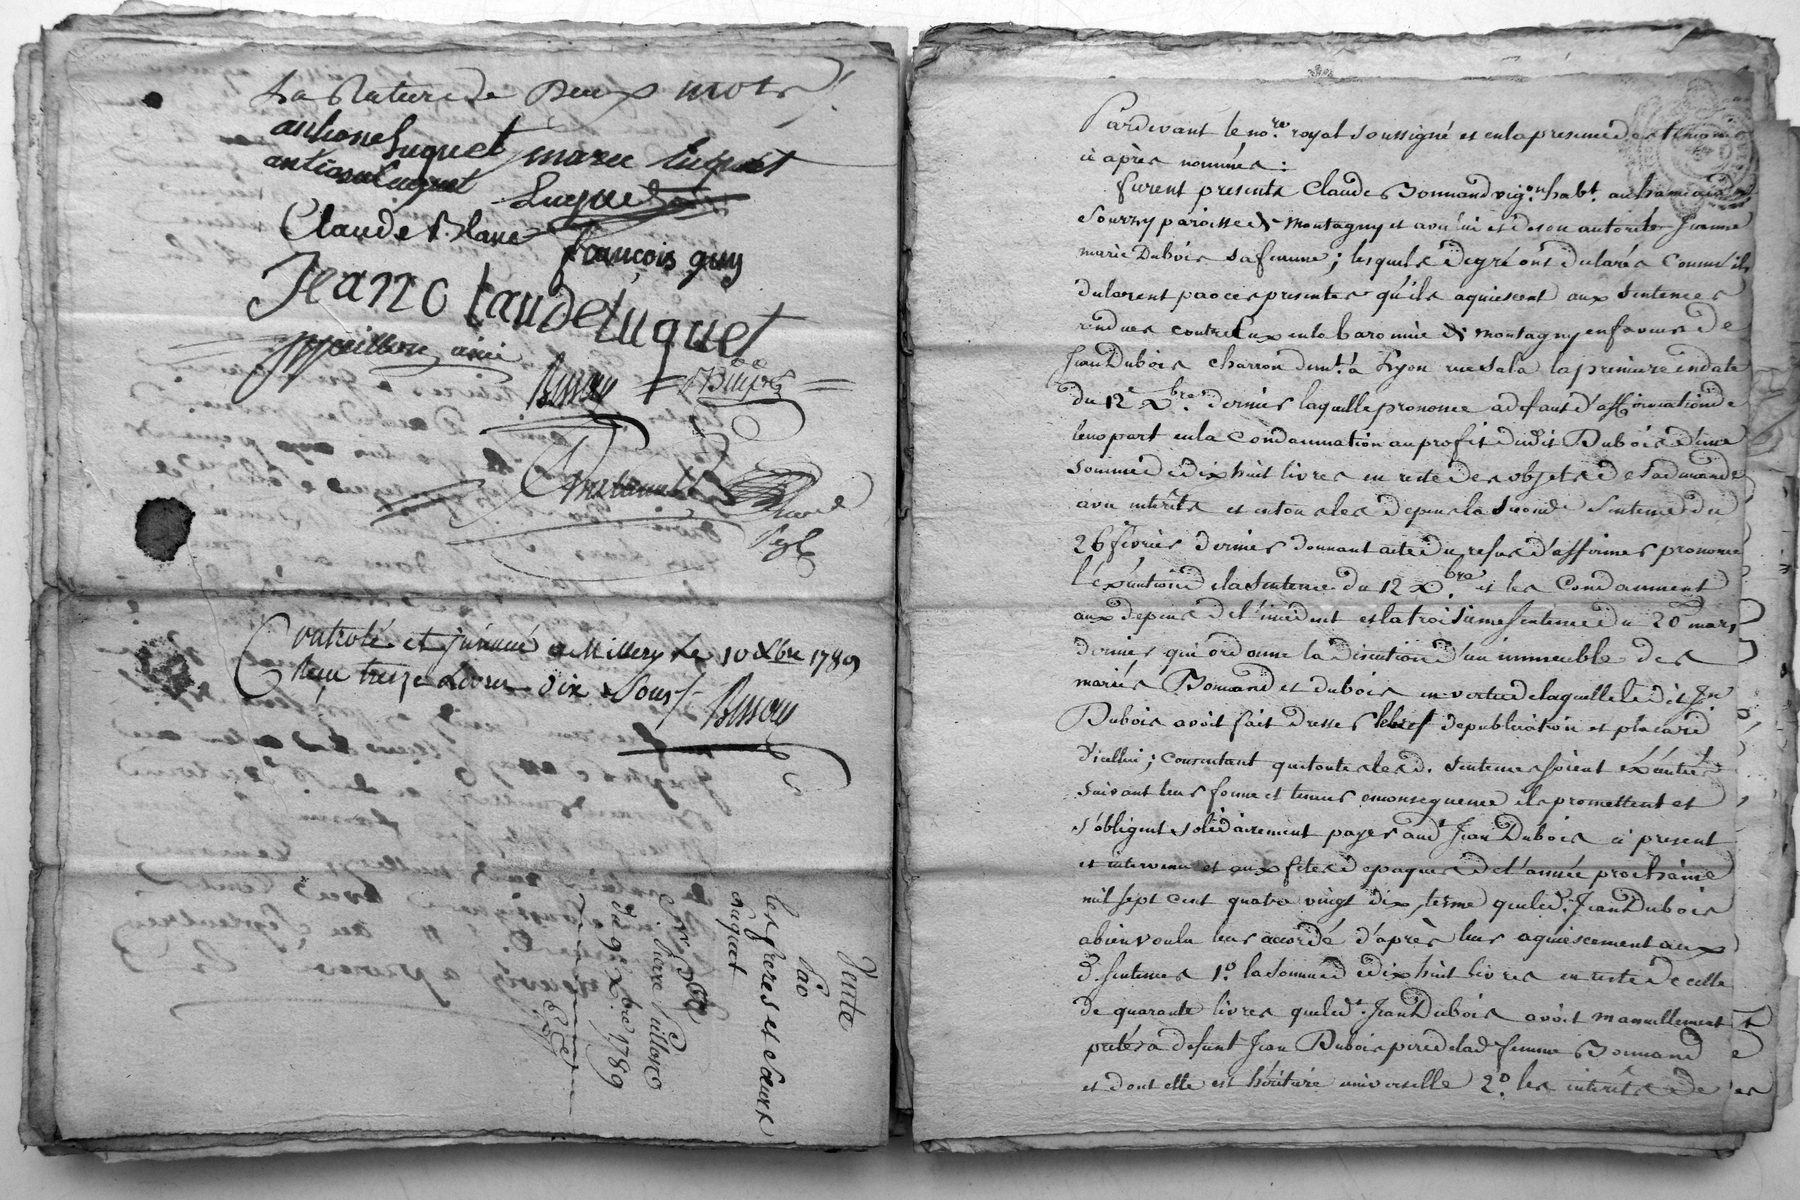 La Rature de Deux mots
anthoine Luquet marie Luquet
Luquet
Claude Blanc françois guy
Jean Claude Luquet
Bessoy
Controlé et insinué a Millery Le 10 xbre 1789
Reçu treize Livres dix Sous Bessoy
Vente
Par
les freres et Sœurs
Luquet
a Sr. Pierre
du 9e. Xbre 1789
Pardevant le nore. royal soussigné et en la presence des temoins
ci après nommés :
furent presents Claude Bonnand vigon. habt. au hameau de
Sourzy paroisse de Montagny et avec lui et de son autorité Jeanne
marie Dubois sa femme ; lesquels de gré ont declarés comme ils
declarent par ces presentes qu'ils aquiescent aux Sentences
rendues contre Eux en la baronnie de Montagny en faveur de
Jean Dubois charron demt. à Lyon rue Sala la premiere en date
du 12e Xbre. dernier laquelle prononce a defaut d'affirmation de
leur part en la Condamnation au profit dudit Dubois d'une
somme de dix huit livres en reste des objets de sa demande
avec interêts et en tous les depens la seconde Sentence du
26 fevrier dernier donnant acte du refus d'affirmer prononce
l'exécution de la Sentence du 12 Xbre. et les Condamnent
aux depens de l'incident et la troisieme sentence du 20 mars
dernier qui ordonne la discution d'un immeuble des
mariés Bonnand et dubois en vertu de laquelle le dit Jn.
Dubois avoit fait dresser le brief de publication et placard
d'icellui ; consentant que toutes les d. Sentences soient Exécutées
suivant leur forme et teneur en consequence ils promettent et
s'obligent solidairement payer audt. Jean Dubois ici present
et intervenu et aux fêtes de paques de l'année prochaine
mil sept cent quatre vingt dix, terme que led. Jean Dubois
a bien voulu leur accordé d'après leur aquiescement aux
d. Sentences 1o. la somme de dix huit livres en reste de celle
de quarante livres que led. Jean Dubois avoit manuellement
pretés a defunt Jean Dubois pere de lad. femme Bonnand
et dont elle est héritiere universelle 2o. les interêts de ces